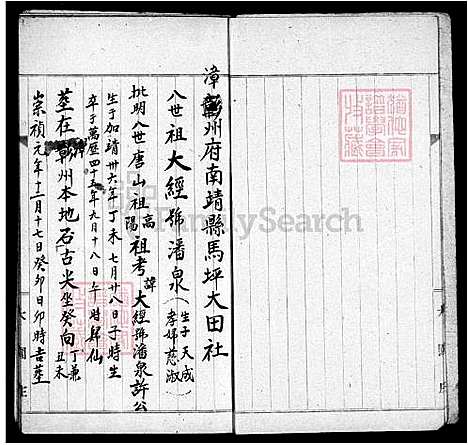 漳州府南靖縣馬坪大田社
八世祖大經號潘泉(生子天成 孝婦慈淑
批明八世唐山祖高陽祖考諱大經號潘泉許公
生于加靖卅六年丁未七月廿八日子時生
卒于萬歷四十五年九月十八日午時歸仙
葬在漳州本地石古尖坐癸向丁兼丑未
崇禎元年十二月十七日癸卯日卯時吉葬
FamilySearch